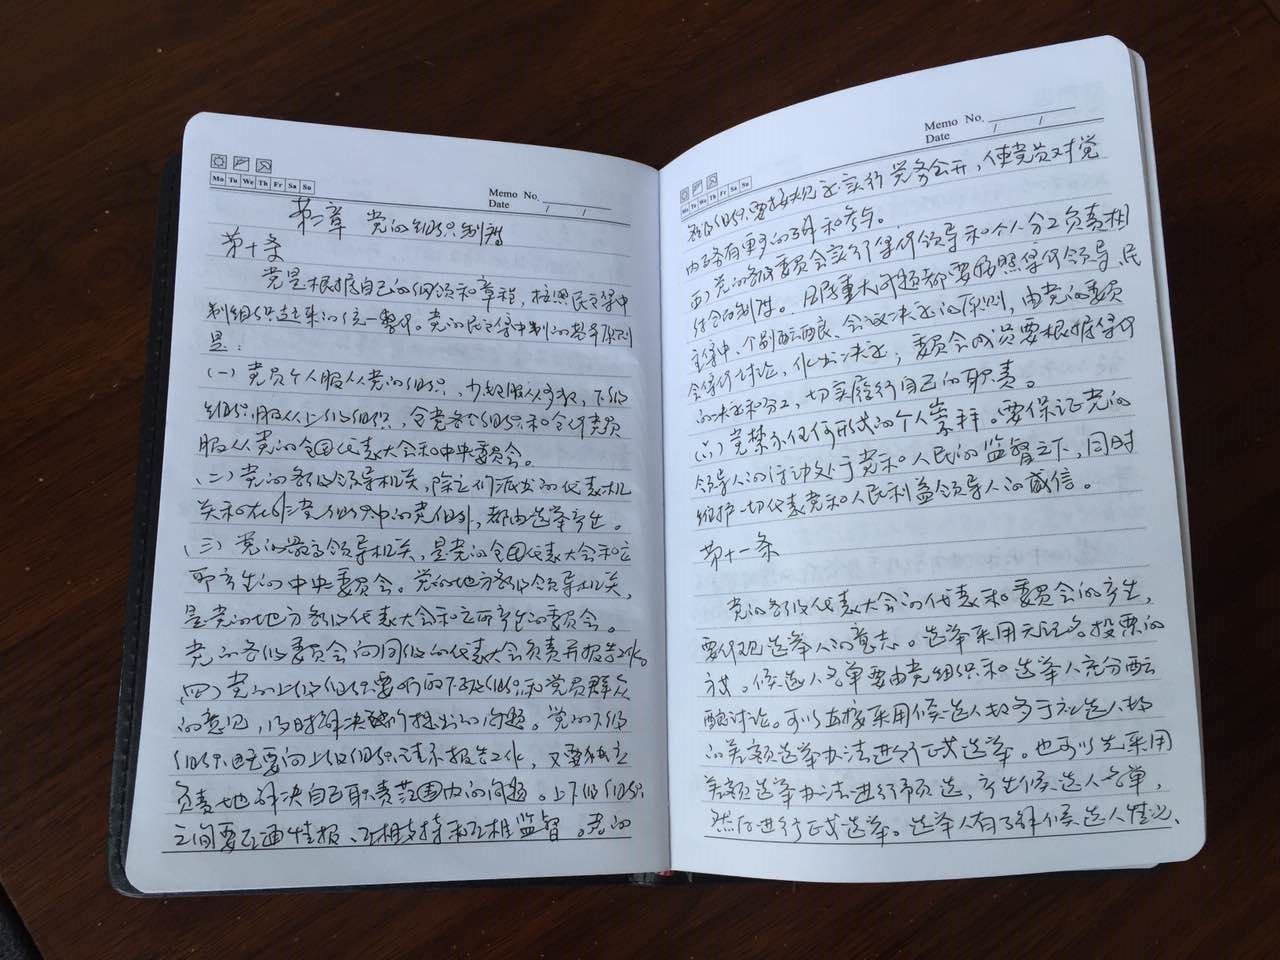 Mo Tu We Th Fr Sa Su
Memo No.
Date / /
第二章 党的组织制度
第十条
党是根据自己的纲领和章程，按照民主集中
制组织起来的统一整体。党的民主集中制的基本原则
是：
（一）党员个人服从党的组织，少数服从多数，下级
组织服从上级组织，全党各个组织和全体党员
服从党的全国代表大会和中央委员会。
（二）党的各级领导机关，除它们派出的代表机
关和在非党组织中的党组外，都由选举产生。
（三）党的最高领导机关，是党的全国代表大会和它
所产生的中央委员会。党的地方各级领导机关，
是党的地方各级代表大会和它所产生的委员会。
党的各级委员会向同级的代表大会负责并报告工作。
（四）党的上级组织要听取下级组织和党员群众
的意见，及时解决他们提出的问题。党的下级
组织既要向上级组织请示报告工作，又要独立
负责地解决自己职责范围内的问题。上下级组织
之间要互通情报、互相支持和互相监督。党的
Mo Tu We Th Fr Sa Su
Memo No.
Date / /
各级组织要按规定实行党务公开，使党员对党
内事务有更多的了解和参与。
（五）党的各级委员会实行集体领导和个人分工负责相
结合的制度。凡属重大问题都要按照集体领导、民
主集中、个别酝酿、会议决定的原则，由党的委员
会集体讨论，作出决定；委员会成员要根据集体
的决定和分工，切实履行自己的职责。
（六）党禁止任何形式的个人崇拜。要保证党的
领导人的活动处于党和人民的监督之下，同时
维护一切代表党和人民利益领导人的威信。
第十一条
党的各级代表大会的代表和委员会的产生，
要体现选举人的意志。选举采用无记名投票的
方式。候选人名单要由党组织和选举人充分酝
酿讨论。可以直接采用候选人数多于应选人数
的差额选举办法进行正式选举。也可以先采用
差额选举办法进行预选，产生候选人名单，
然后进行正式选举。选举人有了解候选人情况、